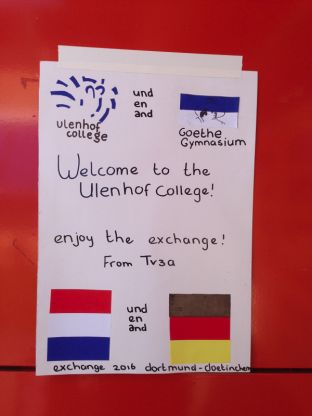 und
en
and
ulenhof
college
Goethe
Gymnasium
Welcome to the
Ulenhof College!
enjoy the exchange!
From Tv3a
und
en
and
exchange 2016 dortmund-doetinchem